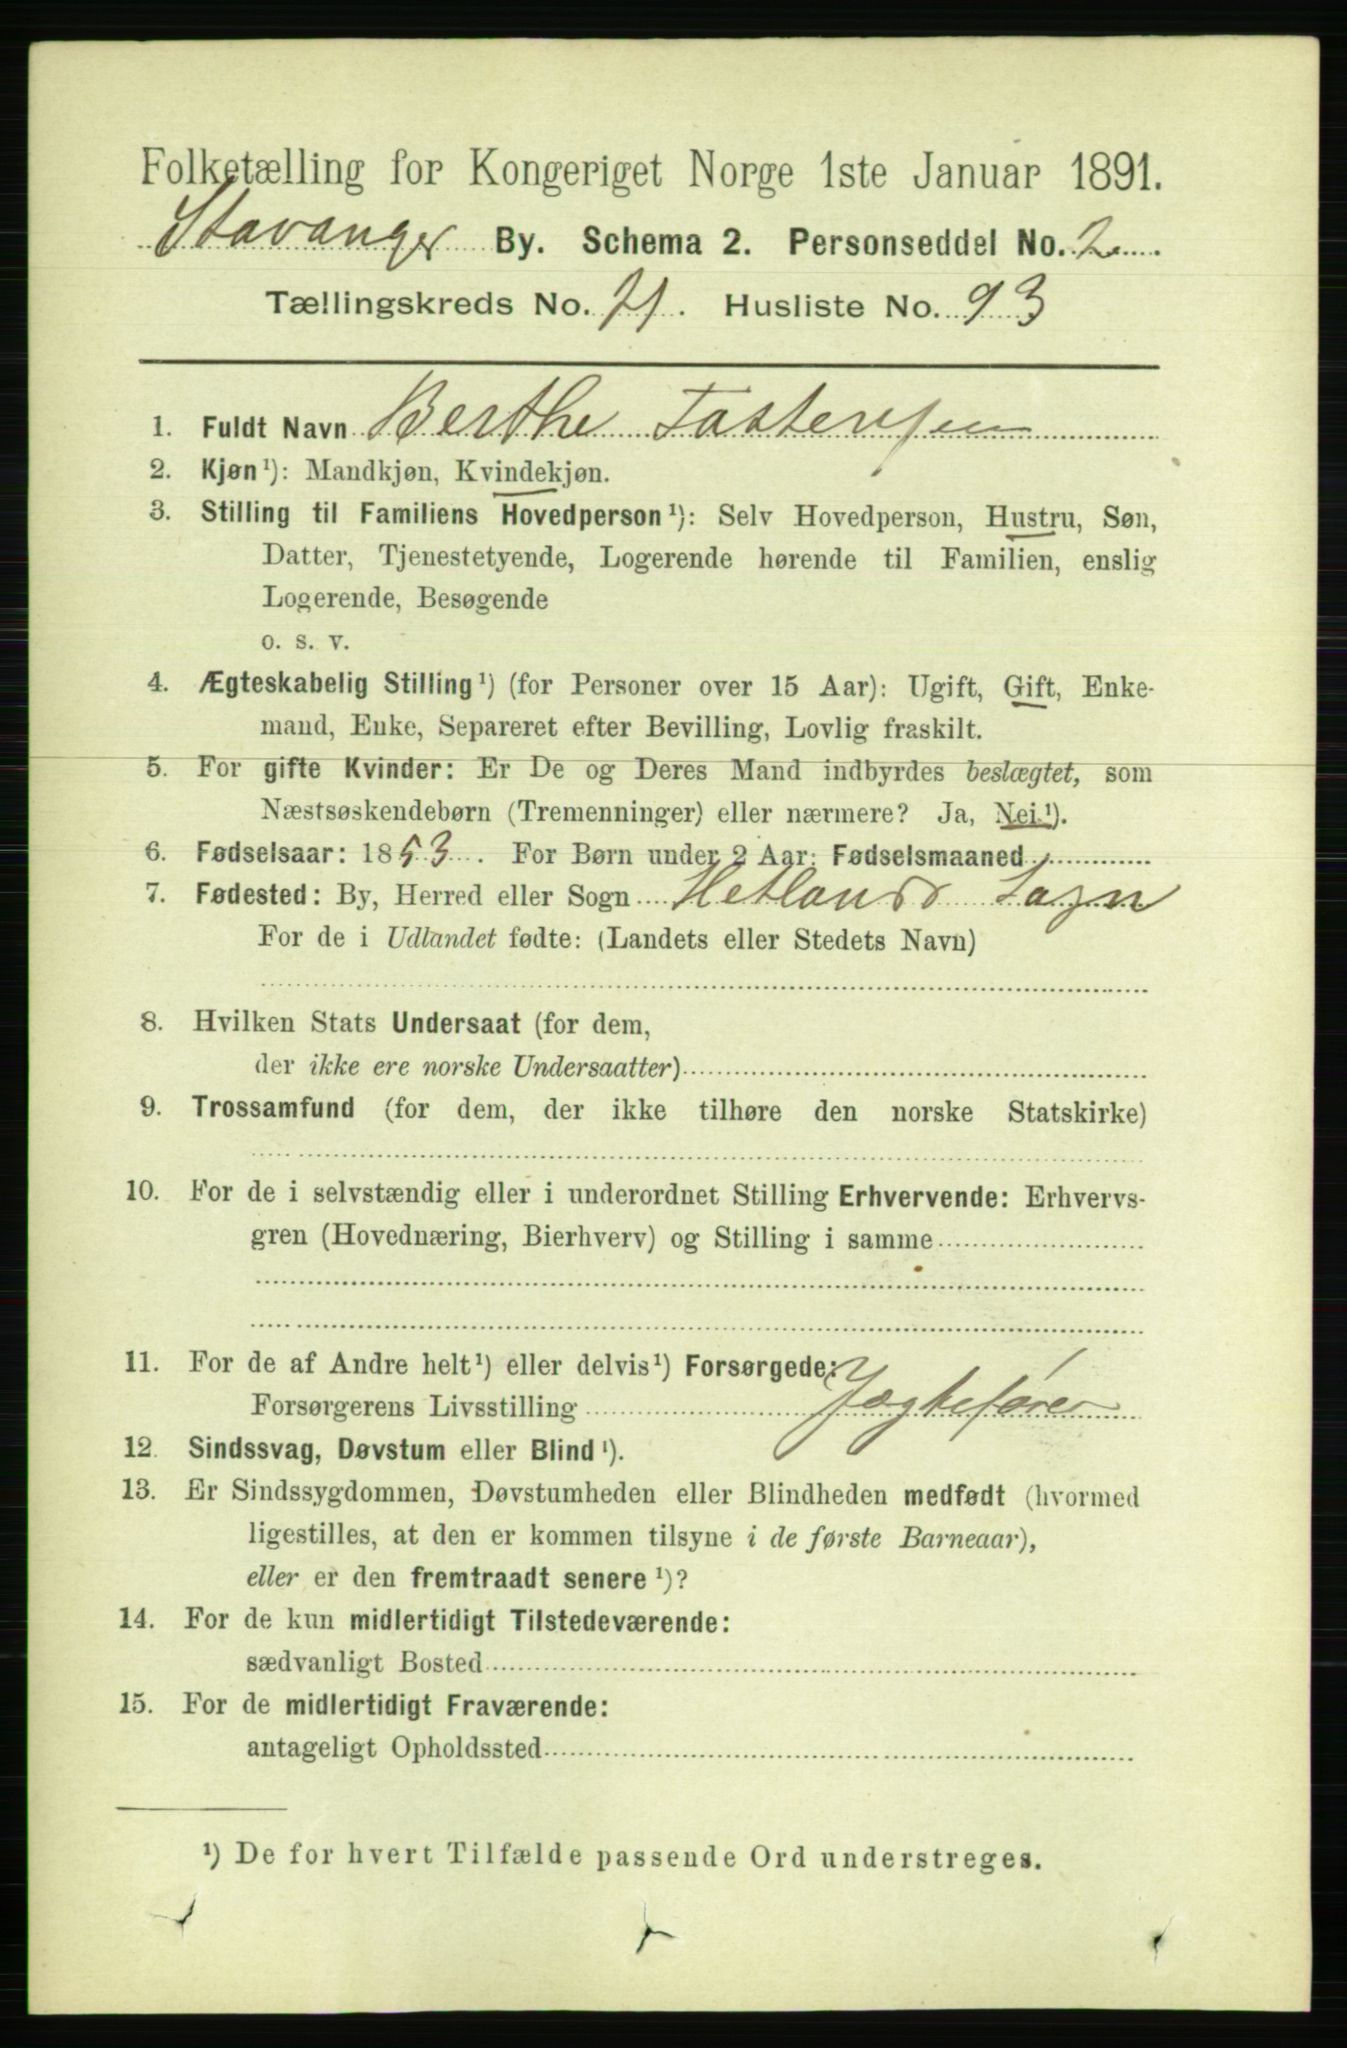 Folketælling for Kongeriget Norge 1ste Januar 1891.
Stavanger By. Schema 2. Personseddel No. 2
Tællingskreds No. 21. Husliste No. 93
1. Fuldt Navn Berthe Tastensen
2. Kjøn¹): Mandkjøn, Kvindekjøn.
3. Stilling til Familiens Hovedperson¹): Selv Hovedperson, Hustru, Søn,
Datter, Tjenestetyende, Logerende hørende til Familien, enslig
Logerende, Besøgende
o. s. v.
4. Ægteskabelig Stilling¹) (for Personer over 15 Aar): Ugift, Gift, Enke-
mand, Enke, Separeret efter Bevilling, Lovlig fraskilt.
5. For gifte Kvinder: Er De og Deres Mand indbyrdes beslægtet, som
Næstsøskendebørn (Tremenninger) eller nærmere? Ja, Nei.¹).
6. Fødselsaar: 1853. For Børn under 2 Aar: Fødselsmaaned
7. Fødested: By, Herred eller Sogn Hetlands Sogn
For de i Udlandet fødte: (Landets eller Stedets Navn)
8. Hvilken Stats Undersaat (for dem,
der ikke ere norske Undersaatter)
9. Trossamfund (for dem, der ikke tilhøre den norske Statskirke)
10. For de i selvstændig eller i underordnet Stilling Erhvervende: Erhvervs-
gren (Hovednæring, Bierhverv) og Stilling i samme
11. For de af Andre helt¹) eller delvis¹) Forsørgede:
Forsørgerens Livsstilling Jægtefører
12. Sindssvag, Døvstum eller Blind¹).
13. Er Sindssygdommen, Døvstumheden eller Blindheden medfødt (hvormed
ligestilles, at den er kommen tilsyne i de første Barneaar),
eller er den fremtraadt senere¹)?
14. For de kun midlertidigt Tilstedeværende:
sædvanligt Bosted
15. For de midlertidigt Fraværende:
antageligt Opholdssted
¹) De for hvert Tilfælde passende Ord understreges.